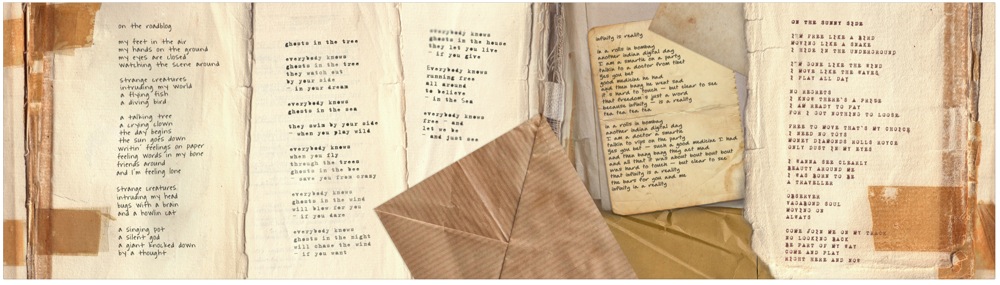 on the roadblog
my feet in the air
my hands on the ground
my eyes are closed
watching the scene around
strange creatures
intruding my world
a flying fish
a diving bird
a talking tree
a crying clown
the day begins
the sun goes down
writin' feelings on paper
feeling words in my bone
friends around
and i'm feeling lone
strange creatures
intruding my head
bugs with a brain
and a howlin cat
a singing pot
a silent god
a giant knocked down
by a thought
ghosts in the tree
everybody knows
ghosts in the tree
they watch out
by your side
- in your dream
everybody knows
ghosts in the sea
they swim by your side
- when you play wild
everybody knows
when you fly
through the trees
ghosts in the bee
- save you from crazy
everybody knows
ghosts in the wind
will blow for you
- if you dare
everybody knows
ghosts in the night
will chase the wind
- if you want
everybody knows
ghosts in the house
they let you live
- if you give
everybody knows
running free
all around
to believe
- in the Sea
everybody knows
free - and
let us be
- and just see
infinity is reality
in a rolls in bombay
another indian digital day
I am a smarta on a party
talkin to a doctor from that
gas you but
good medicine he had
and then bang he went and
it's hard to touch - but clear to see
that freedom's just a word
because infinity - is a reality
tea tea tea tea
in a rolls in bombay
another indian digital day
I am a doctor a smarta
talkin to vips on the party
gas you but - such a good medicine I had
and then bang bang they act mad
and all that it was about bout bout bout
was hard to touch - but clear to see
that infinity is a reality
the bars for you and me
infinity in a reality
ON THE SUNNY SIDE
I'M FREE LIKE A BIRD
MOVING LIKE A SNAKE
I HIDE IN THE UNDERGROUND
I'M GONE LIKE THE WIND
I MOVE LIKE THE WAVES
I PLAY ALL DAY
NO REGRETS
I KNOW THERE'S A PRICE
I AM READY TO PAY
FOR I GOT NOTHING TO LOOSE
FREE TO MOVE THAT'S MY CHOICE
I NEED NO TOYS
MONEY DIAMONDS ROLLS ROYCE
ONLY DUST IN MY EYES
I WANNA SEE CLEARLY
BEAUTY AROUND ME
I WAS BORN TO BE
A TRAVELLER
OBSERVER
VAGABOND SOUL
MOVING ON
ALWAYS
COME JOIN ME ON MY TRACK
NO LOOKING BACK
BE PART OF MY WAY
COME AND PLAY
RIGHT HERE AND NOW